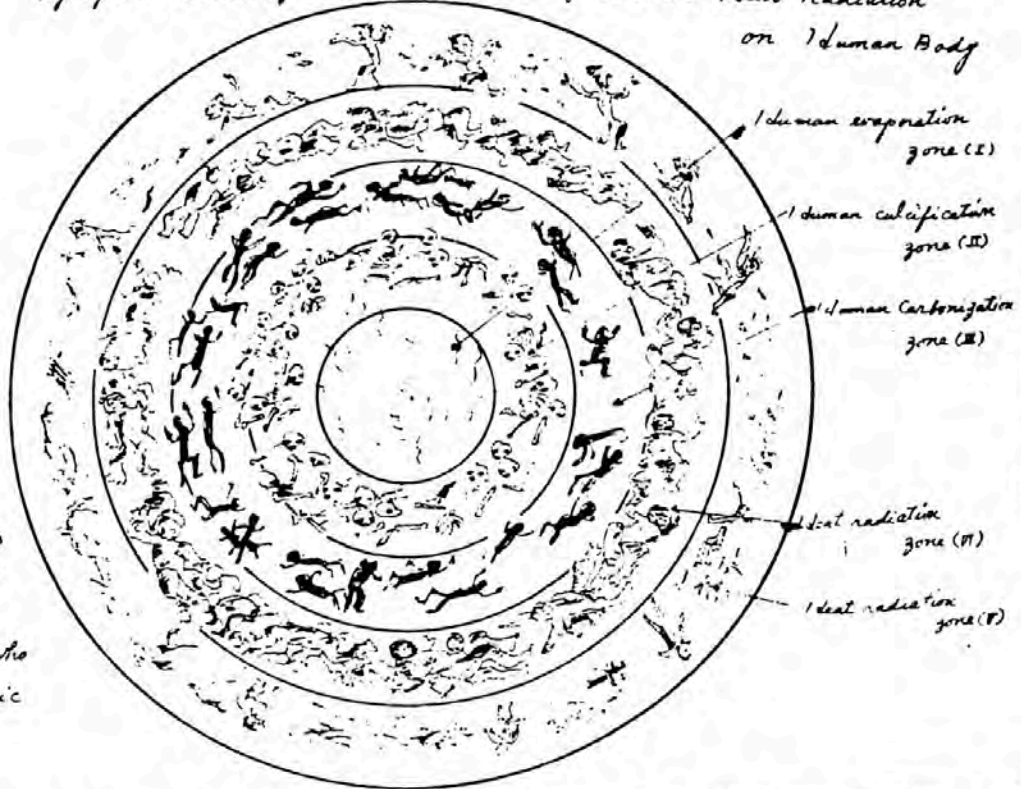 Heat Radiation
on Human Body
Human evaporation
zone (I)
Human culcification
zone (II)
Human Carbonization
zone (III)
Heat radiation
zone (VI)
Heat radiation
zone (V)
who
ic